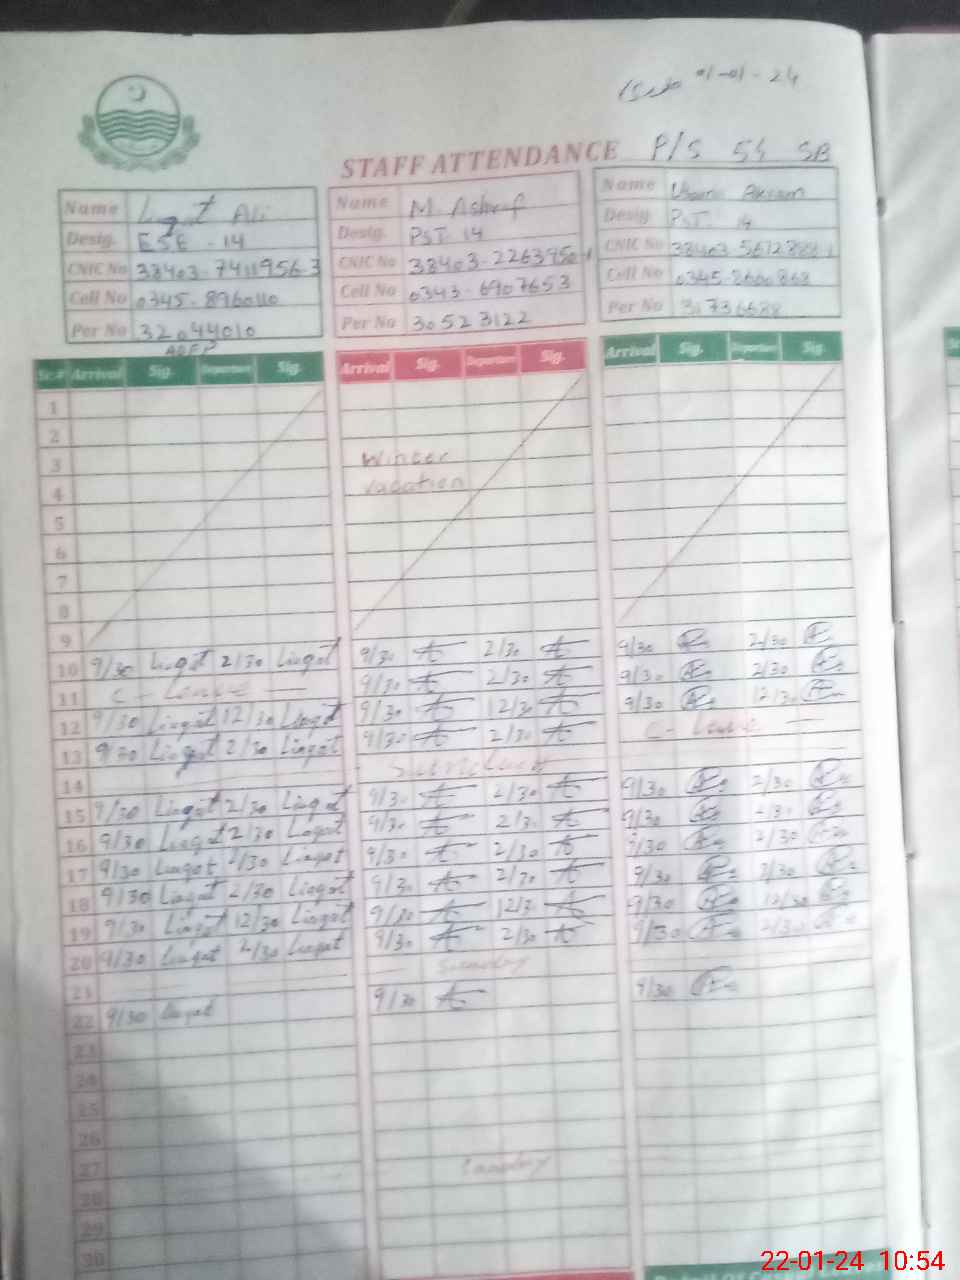 01-01-24
STAFF ATTENDANCE P/S 54 SB
Name Liaqat Ali
Desig. ESE - 14
CNIC No 38403-7411956-3
Cell No 0345-8960110
Per No 32044010
Name M. Ashraf
Desig. PST 14
CNIC No 38403-2263950-1
Cell No 0343-6907653
Per No 30523122
Name Akram
Desig. PST 14
CNIC No 38403-5612888-1
Cell No 0345-8600868
Per No 31736688
Sr.# Arrival Sig. Departure Sig. Arrival Sig. Departure Sig. Arrival Sig. Departure Sig.
1
2
3 Winter
4 vacation
5
6
7
8
9
10 9/30 Liaqat 2/30 Liaqat 9/30 2/30 9/30 2/30
11 C - Leave 9/30 2/30 9/30 2/30
12 9/30 Liaqat 12/30 Liaqat 9/30 12/30 9/30 12/30
13 9/30 Liaqat 2/30 Liaqat 9/30 2/30 C - Leave
14
15 9/30 Liaqat 2/30 Liaqat 9/30 2/30 9/30 2/30
16 9/30 Liaqat 2/30 Liaqat 9/30 2/30 9/30 2/30
17 9/30 Liaqat 2/30 Liaqat 9/30 2/30 9/30 2/30
18 9/30 Liaqat 2/30 Liaqat 9/30 2/30 9/30 2/30
19 9/30 Liaqat 12/30 Liaqat 9/30 12/30 9/30 12/30
20 9/30 Liaqat 2/30 Liaqat 9/30 2/30 9/30 2/30
21 Sunday
22 9/30 Liaqat 9/30 9/30
23
24
25
26
27
28 Sunday
29
30
22-01-24 10:54